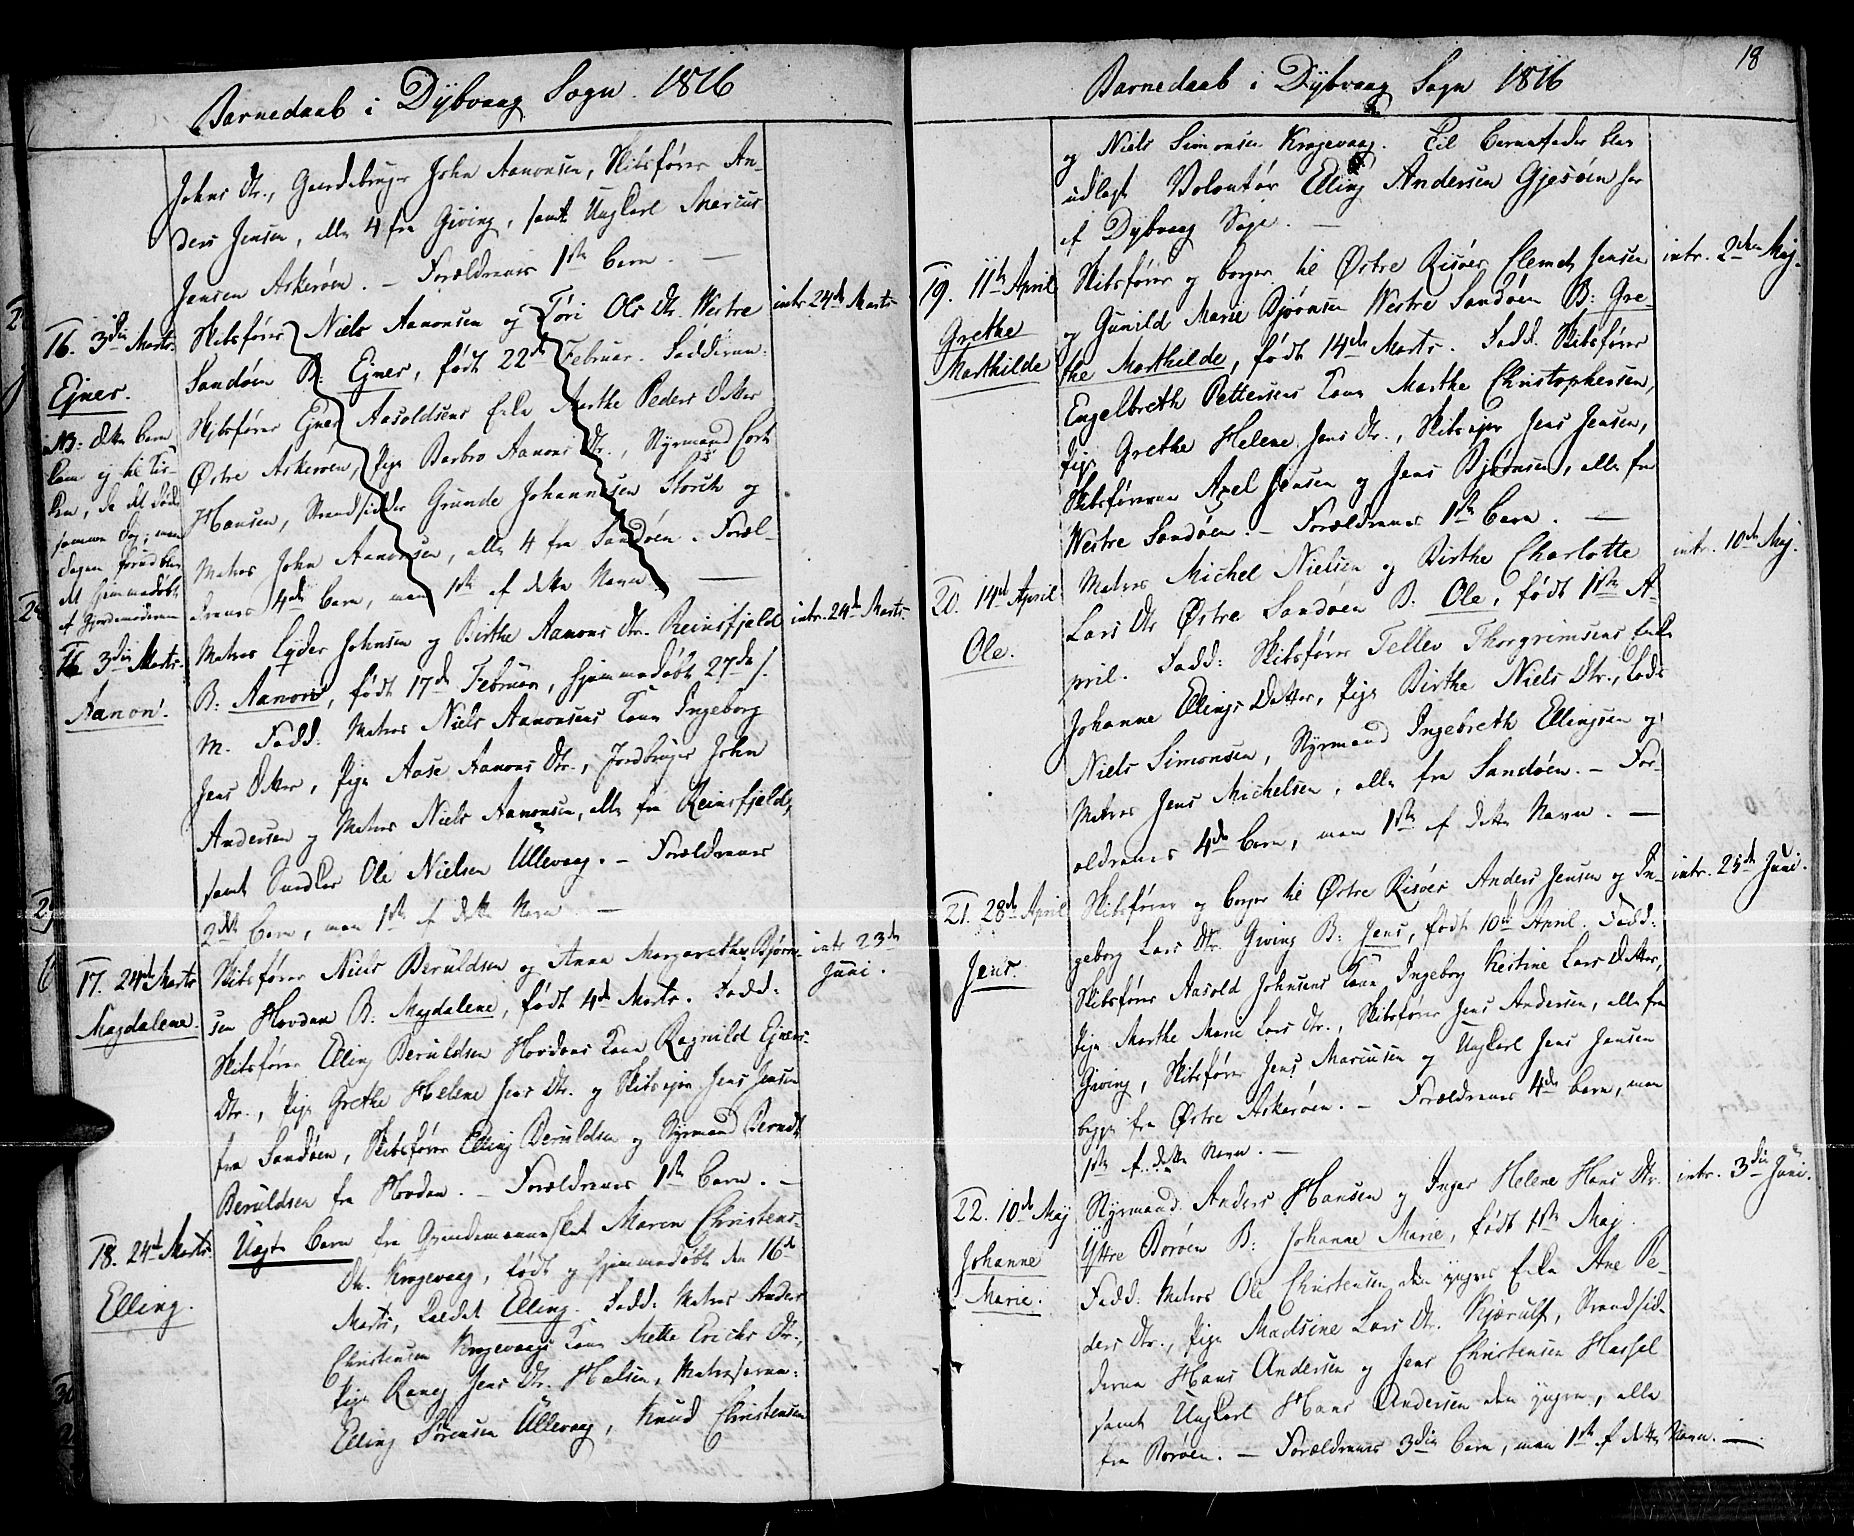 Barnedaab i Dÿbvaag Sogn. 1816
Johns Dtr., Gaardbruger John Aanonsen, Skibsfører An-
ders Jensen, alle 4 fra Giving, samt Ungkarl Marcus
Jensen Askerøen. – Forældrenes 1ste Barn. –
16. 3die Marts.
Ejner.
NB: dette Barn
kom ej til Kir-
ken, da det døde
samme Dag; men
Dagen forud blev
det hjemmedøbt
af Jordemoderen
Skibsfører Niels Aanonsen og Tøri Ols Dtr. Westre
Sandøen B: Ejner, født 22de Februar. Fadderne:
Skibsfører Ejner Aasoldsens Enke Marthe Peders Datter
Østre Askerøen, Pige Barbro Aanons Dtr., Styrmand Cort
Hansen, Strandsidder Grunde Johannesen Storck og
Matros John Aanonsen, alle 4 fra Sandøen. Foræl-
drenes 4de Barn, men 1ste af dette Navn. –
intr. 24de Marts
16 3die Marts.
Aanon.
Matros Lÿder Johnsen og Birthe Aanons Dtr. Reinsfjeld
B: Aanon, født 17de Februar, hjemmedøbt 27de s.
M. Fadd: Matros Niels Aanonsens Kone Ingeborg
Jens Datter, Pige Aase Aanons Dtr., Jordbruger John
Andersen og Matros Niels Aanonsen, alle fra Reinsfjeld,
samt Snedker Ole Nielsen Üllevaag. – Forældrenes
2det Barn, men 1ste af dette Navn –
intr. 24de Marts.
17. 24de Marts
Magdalene.
Skibsfører Niels Beruldsen og Anna Margarethe Bjørn-
sen Hovdan B: Magdalene, født 4de Marts. Fadd:
Skibsfører Elling Beruldsen Hovdans Kone Ragnild Ejners-
Dtr., Pige Grethe Helene Jens Dtr. og Skibsejer Jens Jensen
fra Sandøen, Skibsfører Elling Beruldsen og Styrmand Berndt
Beruldsen fra Hovdan. – Forældrenes 1ste Barn. –
intr 23de
Juni.
18. 24de Marts.
Elling.
Uægte Barn fra Qvindemennesket Maren Christens-
Dtr. Krogevaag, født og hjemmedøbt den 16de
Marts, kaldet Elling. Fadd: Matros Anders
Christensen Krogevaags Kone Mette Erichs Dtr.,
Pige Raneg Jens Dtr. Halsen, Matroserne:
Elling Sørensen Üllevaag, Knud Christensen
18
Barnedaab i Dÿbvaag Sogn 1816
og Niels Simonsen Krogevaag. Til Barnefader blev
udlagt Volontør Elling Andersen Gjesøen her
af Dybvaag Sogn. –
19. 11te April
Grethe
Marthilde
Skibsfører og borger til Østre Risøer Clemet Jensen
og Gunild Marie Bjørnsen Westre Sandøen B: Gre-
the Marthilde, født 14de Marts. Fadd. Skibsfører
Engelbreth Pettersens Kone Marthe Christophersen,
Pige Grethe Helene Jens Dtr., Skibsejer Jens Jensen,
Skibsførerne Axel Jensen og Jens Bjørnsen, alle fra
Westre Sandøen. – Forældrenes 1ste Barn. –
intr. 2den Maj.
20. 14de April
Ole.
Matros Michel Nielsen og Birthe Charlotte
Lars Dtr Østre Sandøen B: Ole, født 1ste A-
pril. Fadd: Skibsfører Tellev Thorgrimsens Enke
Johanne Ellings Datter, Pige Birthe Niels Dtr., Lods
Niels Simonsen, Styrmand Ingebreth Ellingsen og
Matros Jens Michelsen, alle fra Sandøen. – For-
ældrenes 4de Barn, men 1ste af dette Navn. –
intr. 10de Maj.
21. 28de April
Jens.
Skibsfører og borger til Østre Risøer Anders Jensen og In-
geborg Lars Dtr. Giving B: Jens, født 10de April. Fadd:
Skibsfører Aasold Johnsens Kone, Ingeborg Kestine Lars Datter,
Pige Marthe Marie Lars Dtr., Skibsfører Jens Andersen, alle fra
Giving, Skibsfører Jens Marcusen og Ungkarl Jens Jensen
begge fra Østre Askerøen. – Forældrenes 4de Barn, men
1ste af dette Navn. –
intr. 23de Juni.
22. 10de Maj
Johanne
Marie.
Styrmand Anders Hansen og Inger Helene Hans Dtr.
Yttre Borøen B: Johanne Marie, født 1ste Maj.
Fadd: Matros Ole Christensen den yngres Enke Ane Pe-
ders Dtr., Pige Madsine Lars Dtr. Kjærulf, Strandsid-
derne Hans Andersen og Jens Christensen Hassel
samt Ungkarl Hans Andersen den yngre, alle
fra Borøen. – Forældrenes 3die Barn, men 1ste af dette Navn. –
intr. 3die Juni.